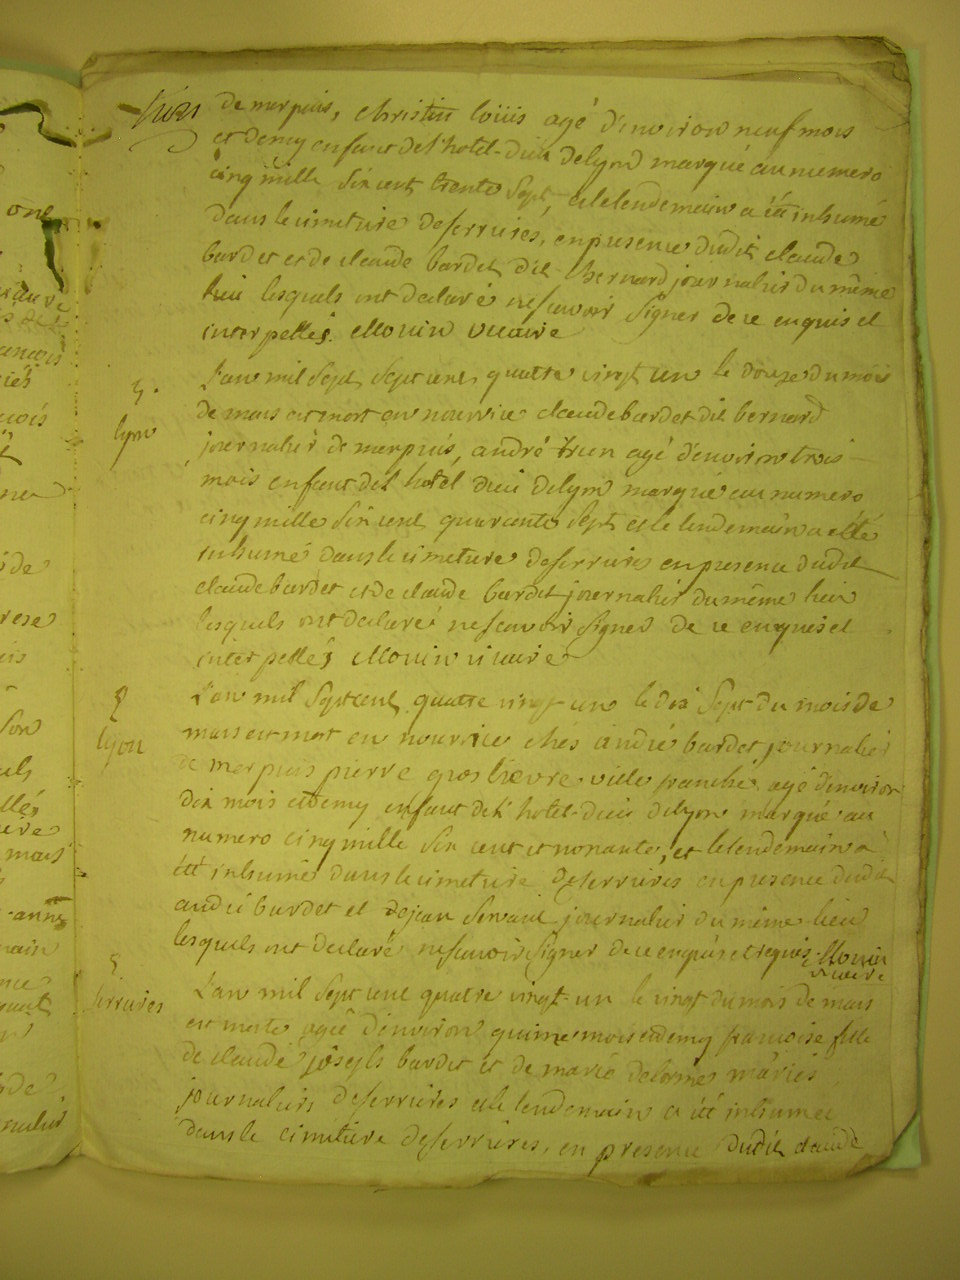 de merpuis, christin loüis agé d'environ neuf mois
et demy enfant del'hotel-dieu delyon marqué au numero
cinq mille six cent trente sept, et le lendemain a été inhumé
dans le cimetiere deserrieres, en presence dudit claude
bardet et de claude bardet dit bernard journalier du même
lieu lesquels ont declaré ne scavoir signer de ce enquis et
interpellés. Mouin vicaire
S.
lyon
L'an mil sept sept cent quatre vingt un le douze du mois
de mars est mort en nourrice claude bardet dit bernard
journalier de merpuis, andré agé d'environ trois
mois enfant del hotel dieu delyon marqué au numero
cinq mille six cent quarante sept et le lendemain a etté
inhumé dans le cimetiere deserrieres en presence dudit
claude bardet et de claude bardet journalier du même lieu
lesquels ont declaré ne scavoir signer de ce enquis et
interpellés Mouin vicaire
S
lyon
L'an mil sept cent quatre vingt un le dix sept du mois de
mars est mort en nourrice chés andré bardet journalier
de merpuis pierre gros lievre ville franche agé d'environ
dix mois et demy enfant del' hotel-dieu delyon marqué au
numero cinq mille six cent et nonante, et le lendemain a
été inhumé dans le cimetiere deserrieres en presence dudit
andré bardet et de jean journalier du même lieu
lesquels ont declaré ne scavoir signer de ce enquis et requis Mouin
vicaire
S.
serrieres
L'an mil sept cent quatre vingt-un le vingt du mois de mars
est morte agée d'environ quinze mois et demy francoise fille
de claude joseph bardet et de marie delorme mariés
journaliers deserrieres et le lendemain a été inhumée
dans le cimetiere deserrieres, en presence dudit claude